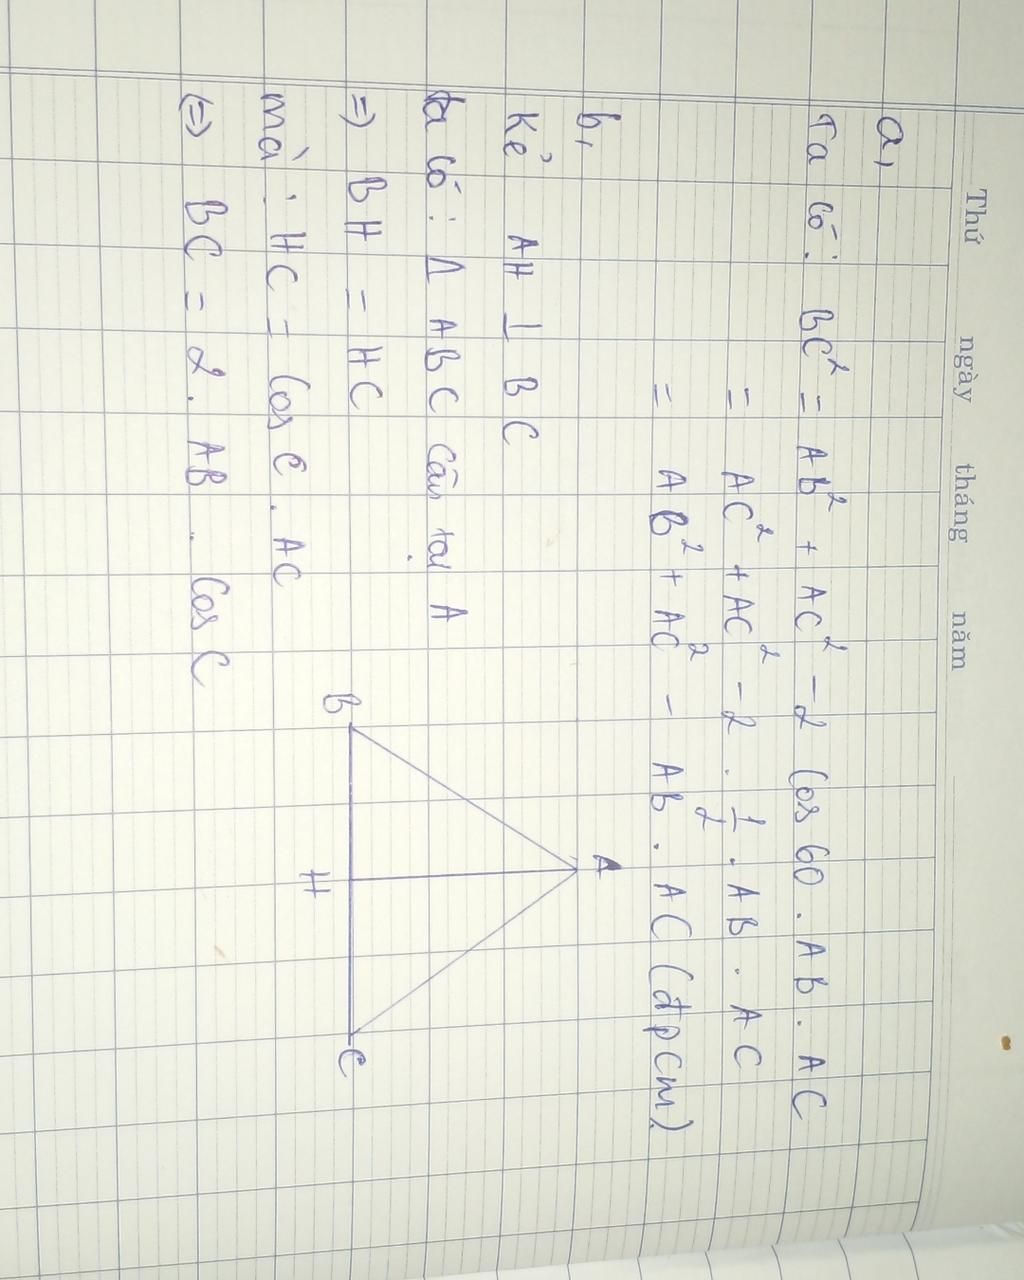 Thứ ngày tháng năm
a,
Ta có: BC² = AB² + AC² - 2 cos 60 . AB . AC
= AC² + AC² - 2 . 1/2 . AB . AC
= AB² + AC² - AB . AC (đpcm)
b,
Kẻ AH ⊥ BC
ta có: Δ ABC cân tại A
=> BH = HC
mà : HC = cos C . AC
(=) BC = 2 . AB . cos C
A
B
H
C